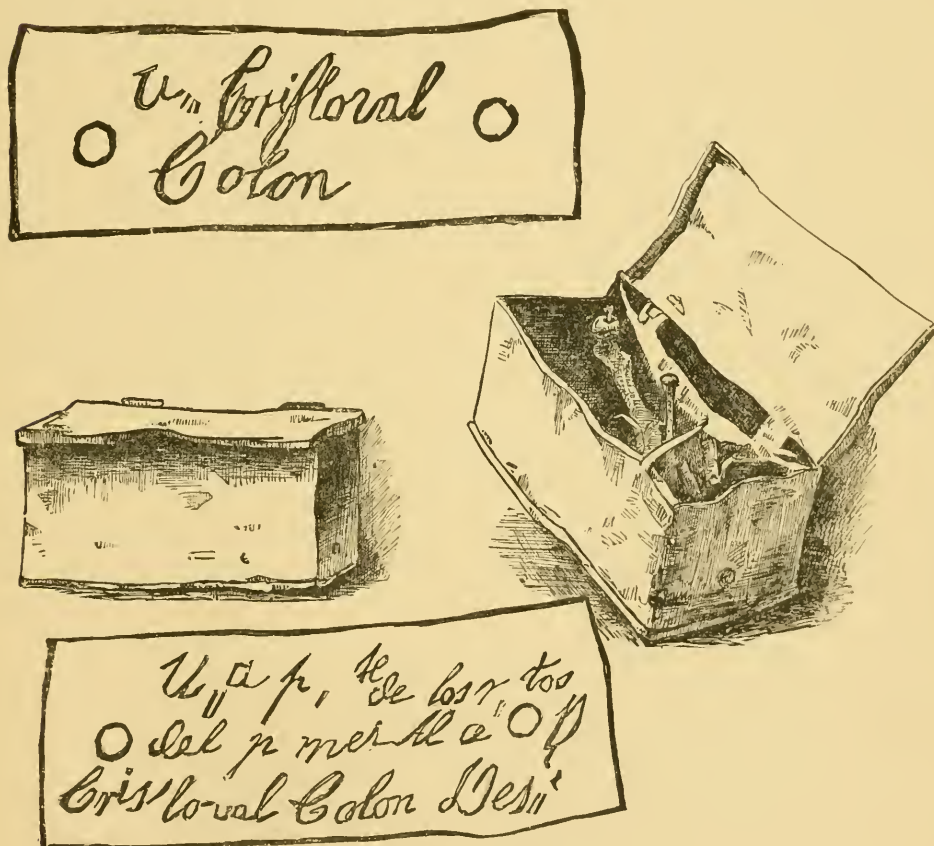 U,, Cristoval
Colon
U,, a p, te de los r tos
del p mer Al e D
Cristoval Colon Des,,